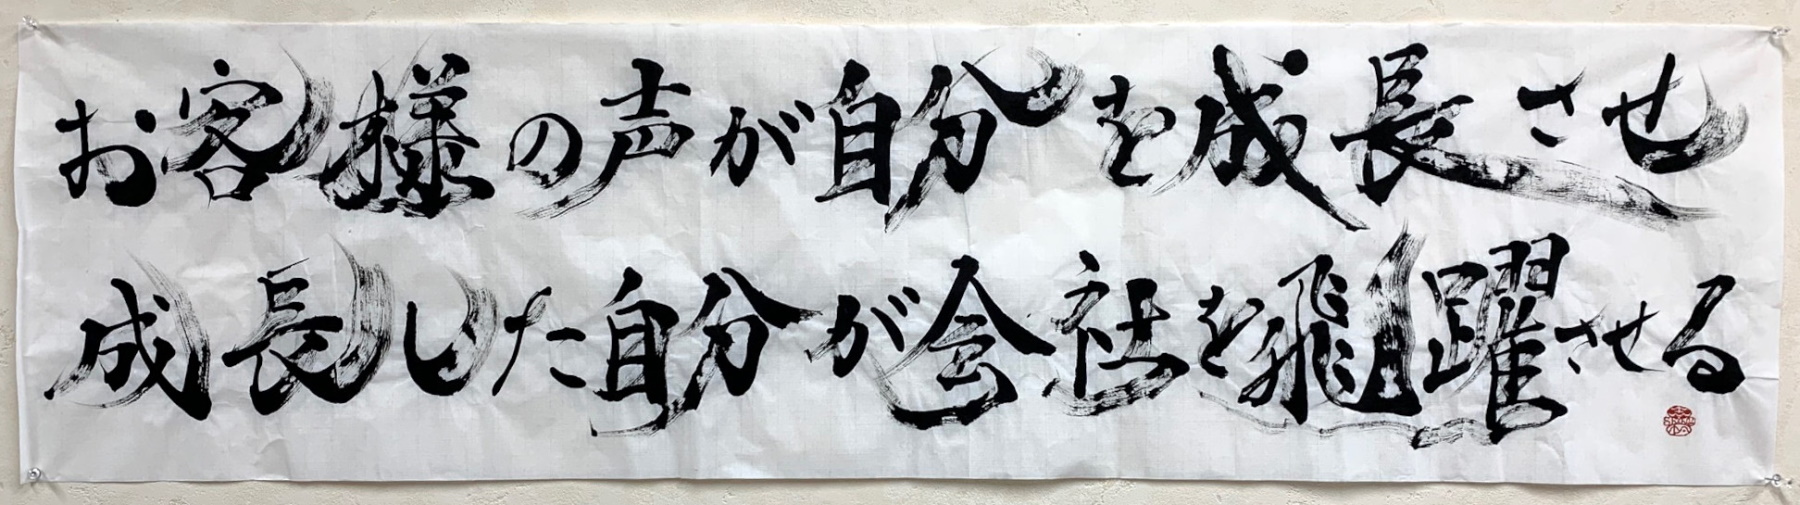 お客様の声が自分を成長させ
成長した自分が会社を飛躍させる